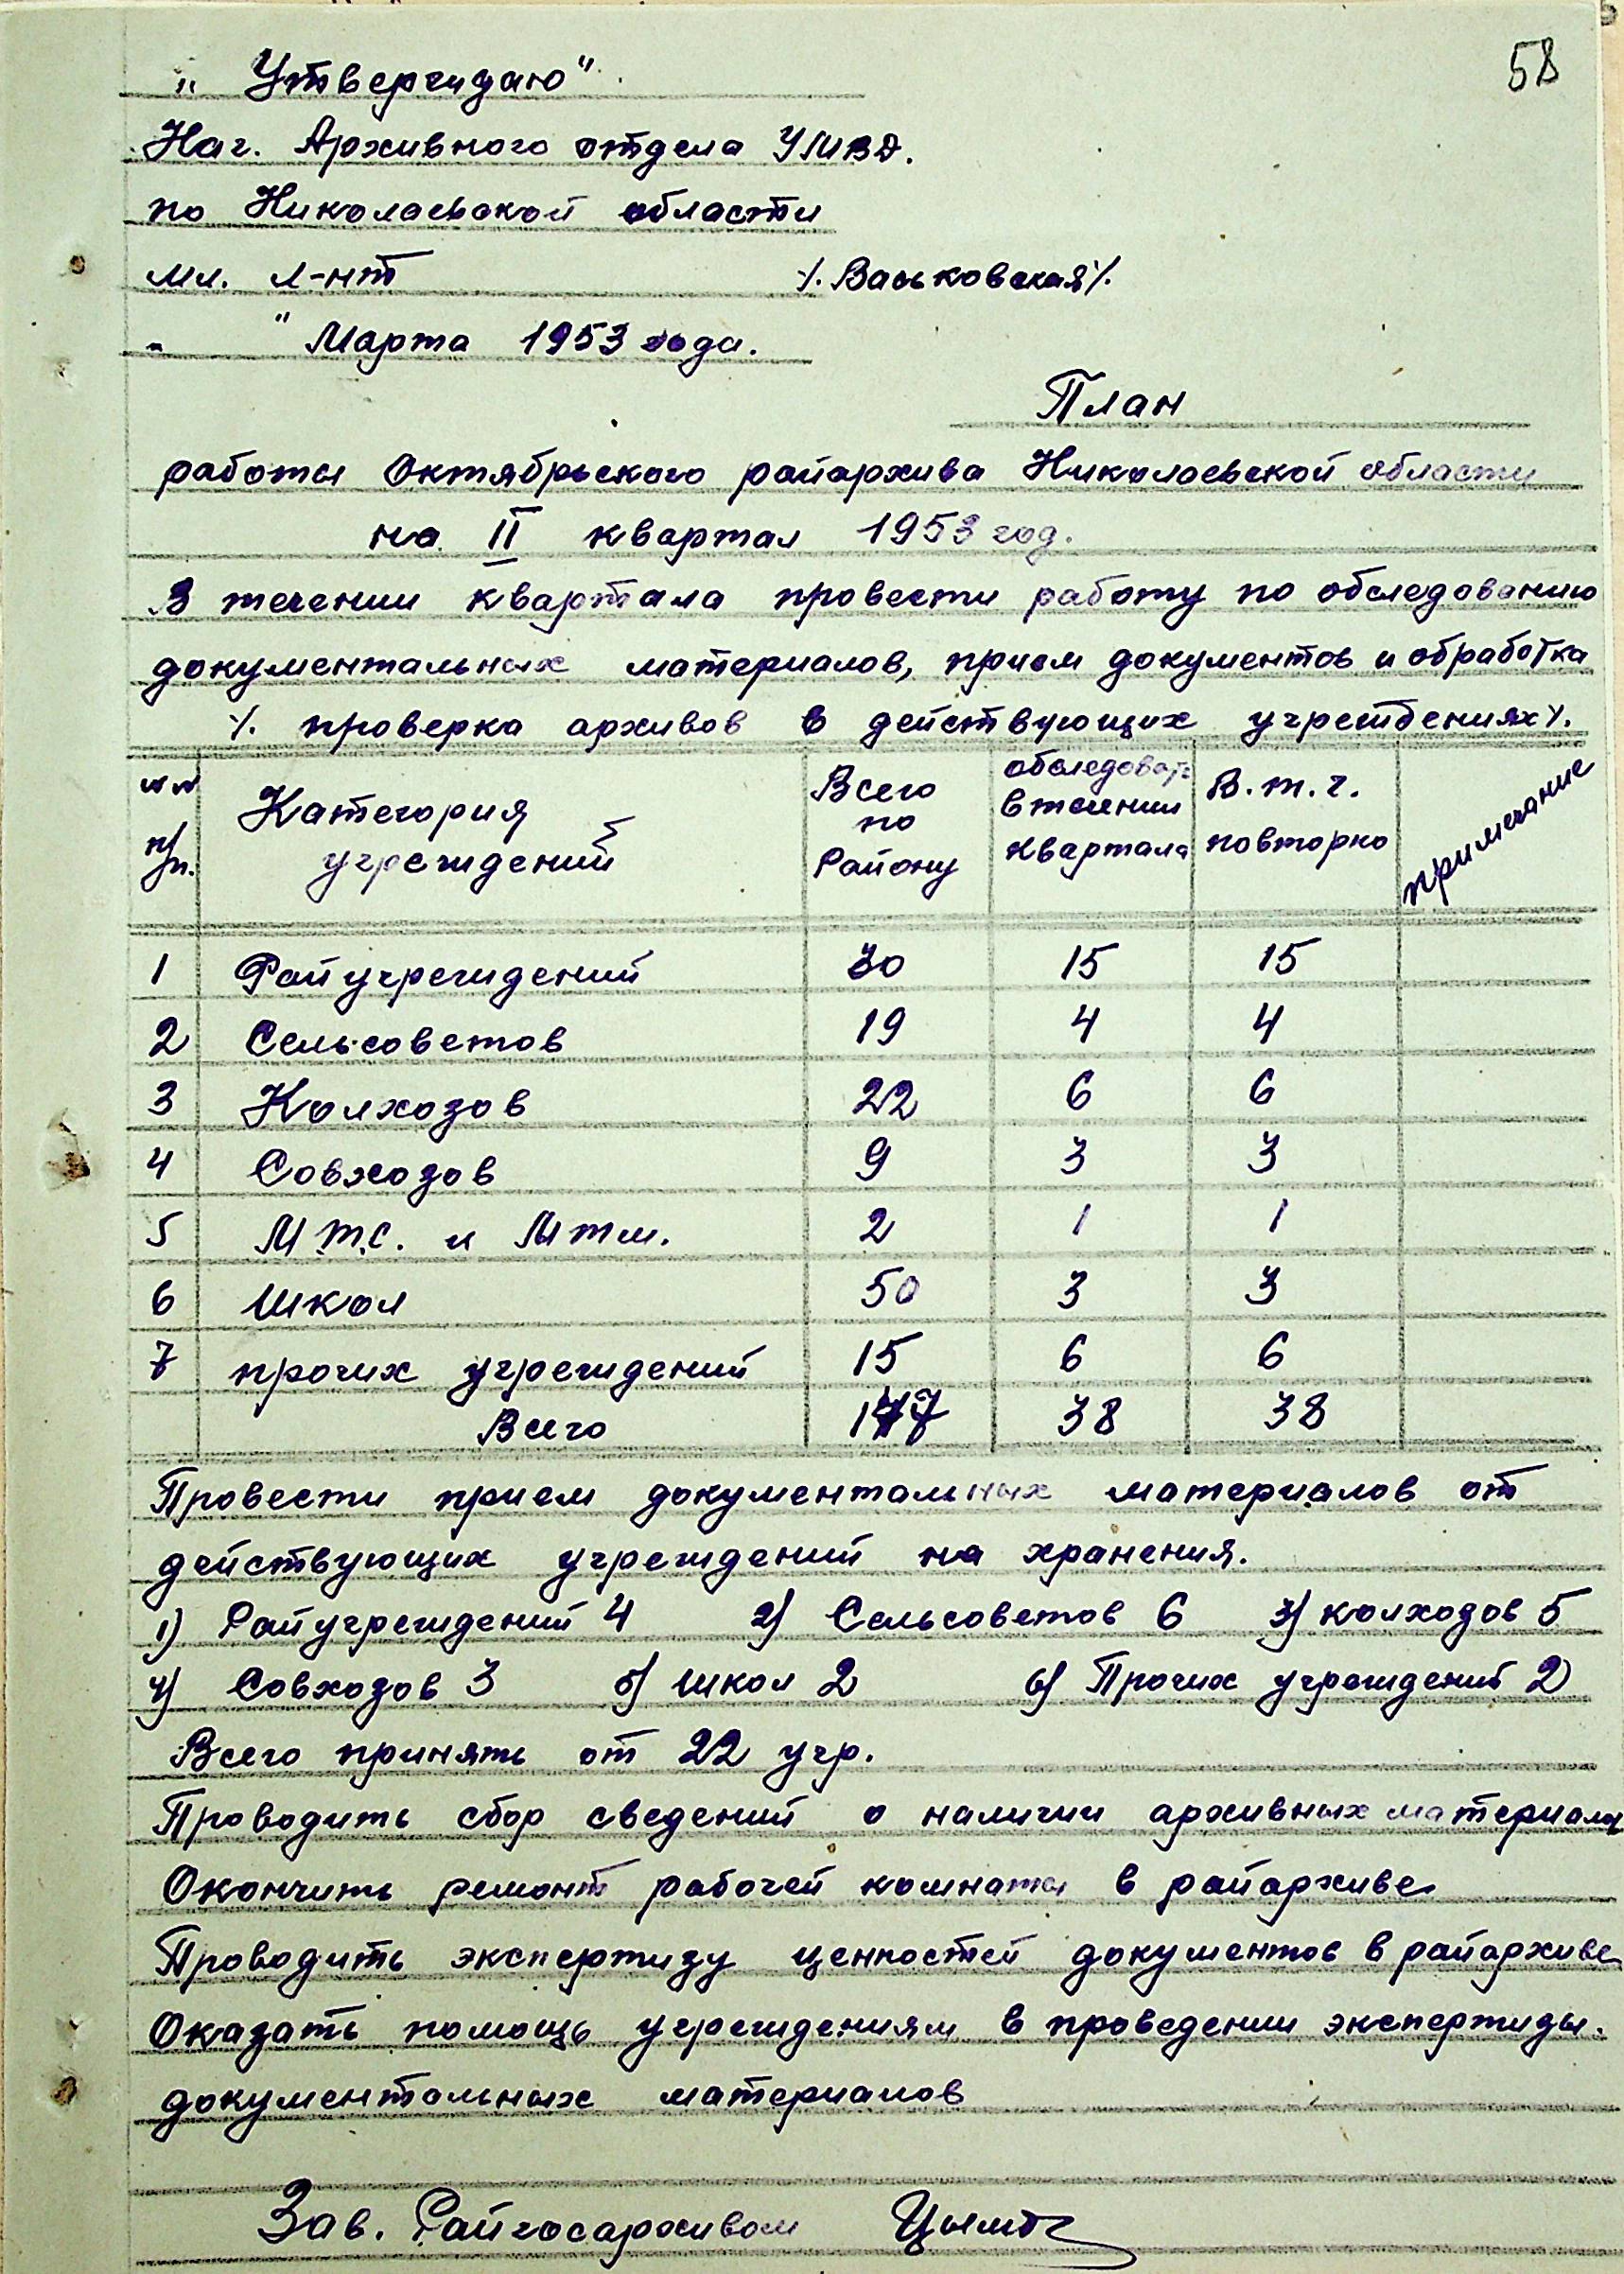 58
„ Утверждаю"
Нач. Архивного отдела УМВД.
по Николаевской области
мл. л-нт ⁒. Васьковская ⁒.
„ " Марта 1953 года.
План
работы Октябрьского райархива Николаевской области
на II квартал 1953 год.
В течении квартала провести работу по обследованию
документальных материалов, прием документов и обработка
⁒. проверка архивов в действующих учреждениях ⁒.
№№ п/п. Категория учреждений Всего по Району обследовать в течении квартала В. т. ч. повторно примечание
1 Райучреждений 30 15 15
2 Сельсоветов 19 4 4
3 Колхозов 22 6 6
4 Совхозов 9 3 3
5 М.Т.С. и Мтм. 2 1 1
6 Школ 50 3 3
7 прочих учреждений 15 6 6
Всего 147 38 38
Провести прием документальных материалов от
действующих учреждений на хранения.
1) Райучреждений 4 2) Сельсоветов 6 3) колхозов 5
4) Совхозов 3 5) школ 2 6) Прочих учреждений 2
Всего принять от 22 учр.
Проводить сбор сведений о наличии архивных материалов
Окончить ремонт рабочей комнаты в райархиве
Проводить экспертизу ценностей документов в райархиве
Оказать помощь учреждениям в проведении экспертизы.
документальных материалов
Зав. Райгосархивом